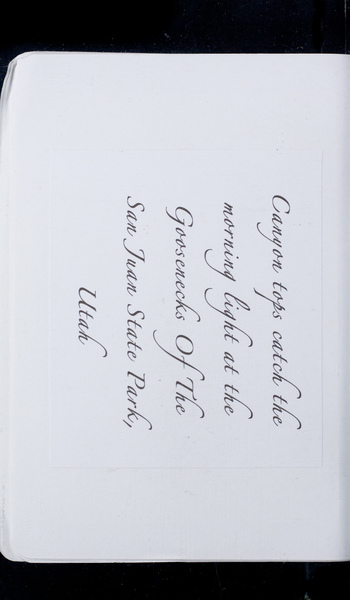 Canyon tops catch the
morning light at the
Goosenecks Of The
San Juan State Park,
Utah